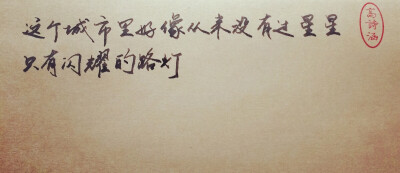 这个城市里好像从来没有过星星
只有闪耀的路灯
高诗涵